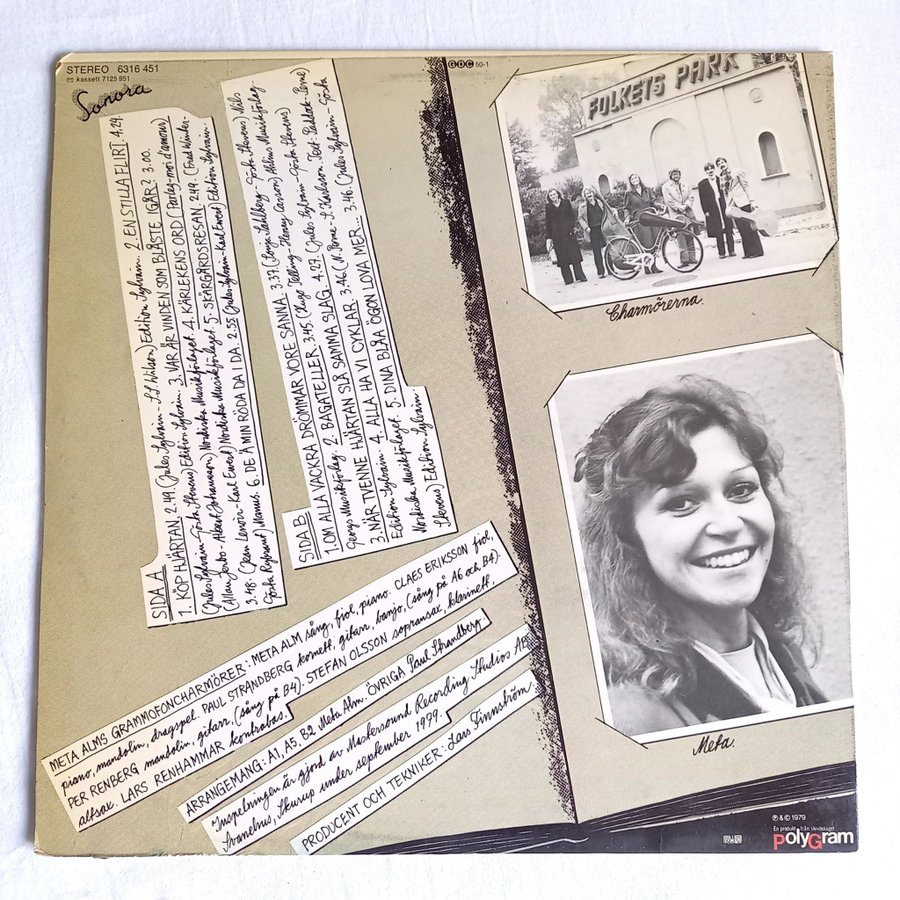 STEREO 6316 451
kassett 7125 951
Sonora
GDC 50-1
SIDA A
1. KÖP HJÄRTAN. 2.49. (Jules Sylvain - S.S. Wilson) Edition Sylvain. 2. EN STILLA FLIRT. 4.24.
(Jules Sylvain - Gösta Stevens) Edition Sylvain. 3. VAR ÄR VINDEN SOM BLÅSTE IGÅR? 3.00.
(Allan Jenbo - Albert Johannson) Nordiska Musikförlaget. 4. KÄRLEKENS ORD (Parlez-moi d'amour)
3.48. (Jean Lenoir - Karl Ewert) Nordiska Musikförlaget. 5. SKÄRGÅRDSRESAN. 2.49. (Fred Winter -
Gösta Rybrant) Manus. 6. DE Ä MIN RÖDA DA I DA. 2.55 (Jules Sylvain - Karl Ewert) Edition Sylvain.
SIDA B.
1. OM ALLA VACKRA DRÖMMAR VORE SANNA. 3.37. (Sonja Sahlberg - Gösta Stevens) Nils
Georgs Musikförlag. 2. BAGATELLER. 3.45. (Helge Henry Carson) Ahlins Musikförlag.
3. NÄR TVENNE HJÄRTAN SLÅ SAMMA SLAG. 4.27. (Jules Sylvain - Gösta Stevens)
Edition Sylvain. 4. ALLA HA VI CYKLAR. 3.46. (N. Perne - S. Karlsson. Text: Paddock - Perne)
Nordiska Musikförlaget. 5. DINA BLÅA ÖGON LOVA MER... 3.46. (Jules Sylvain - Gösta
Stevens) Edition Sylvain.
META ALMS GRAMMOFONCHARMÖRER: META ALM sång, fiol, piano. CLAES ERIKSSON fiol,
piano, mandolin, dragspel. PAUL STRANDBERG kornett, gitarr, banjo, (sång på A6 och B4).
PER RENBERG mandolin, gitarr, (sång på B4). STEFAN OLSSON sopransax, klarinett,
altsax. LARS RENHAMMAR kontrabas.
ARRANGEMANG: A1, A5, B2 Meta Alm. ÖVRIGA Paul Strandberg.
Inspelningen är gjord av Mastersound Recording Studios AB,
Svaneholm, Skurup under september 1979.
PRODUCENT OCH TEKNIKER: Lars Finnström.
FOLKETS PARK
Charmörerna.
Meta.
℗ & © 1979
En produkt från skivbolaget
PolyGram